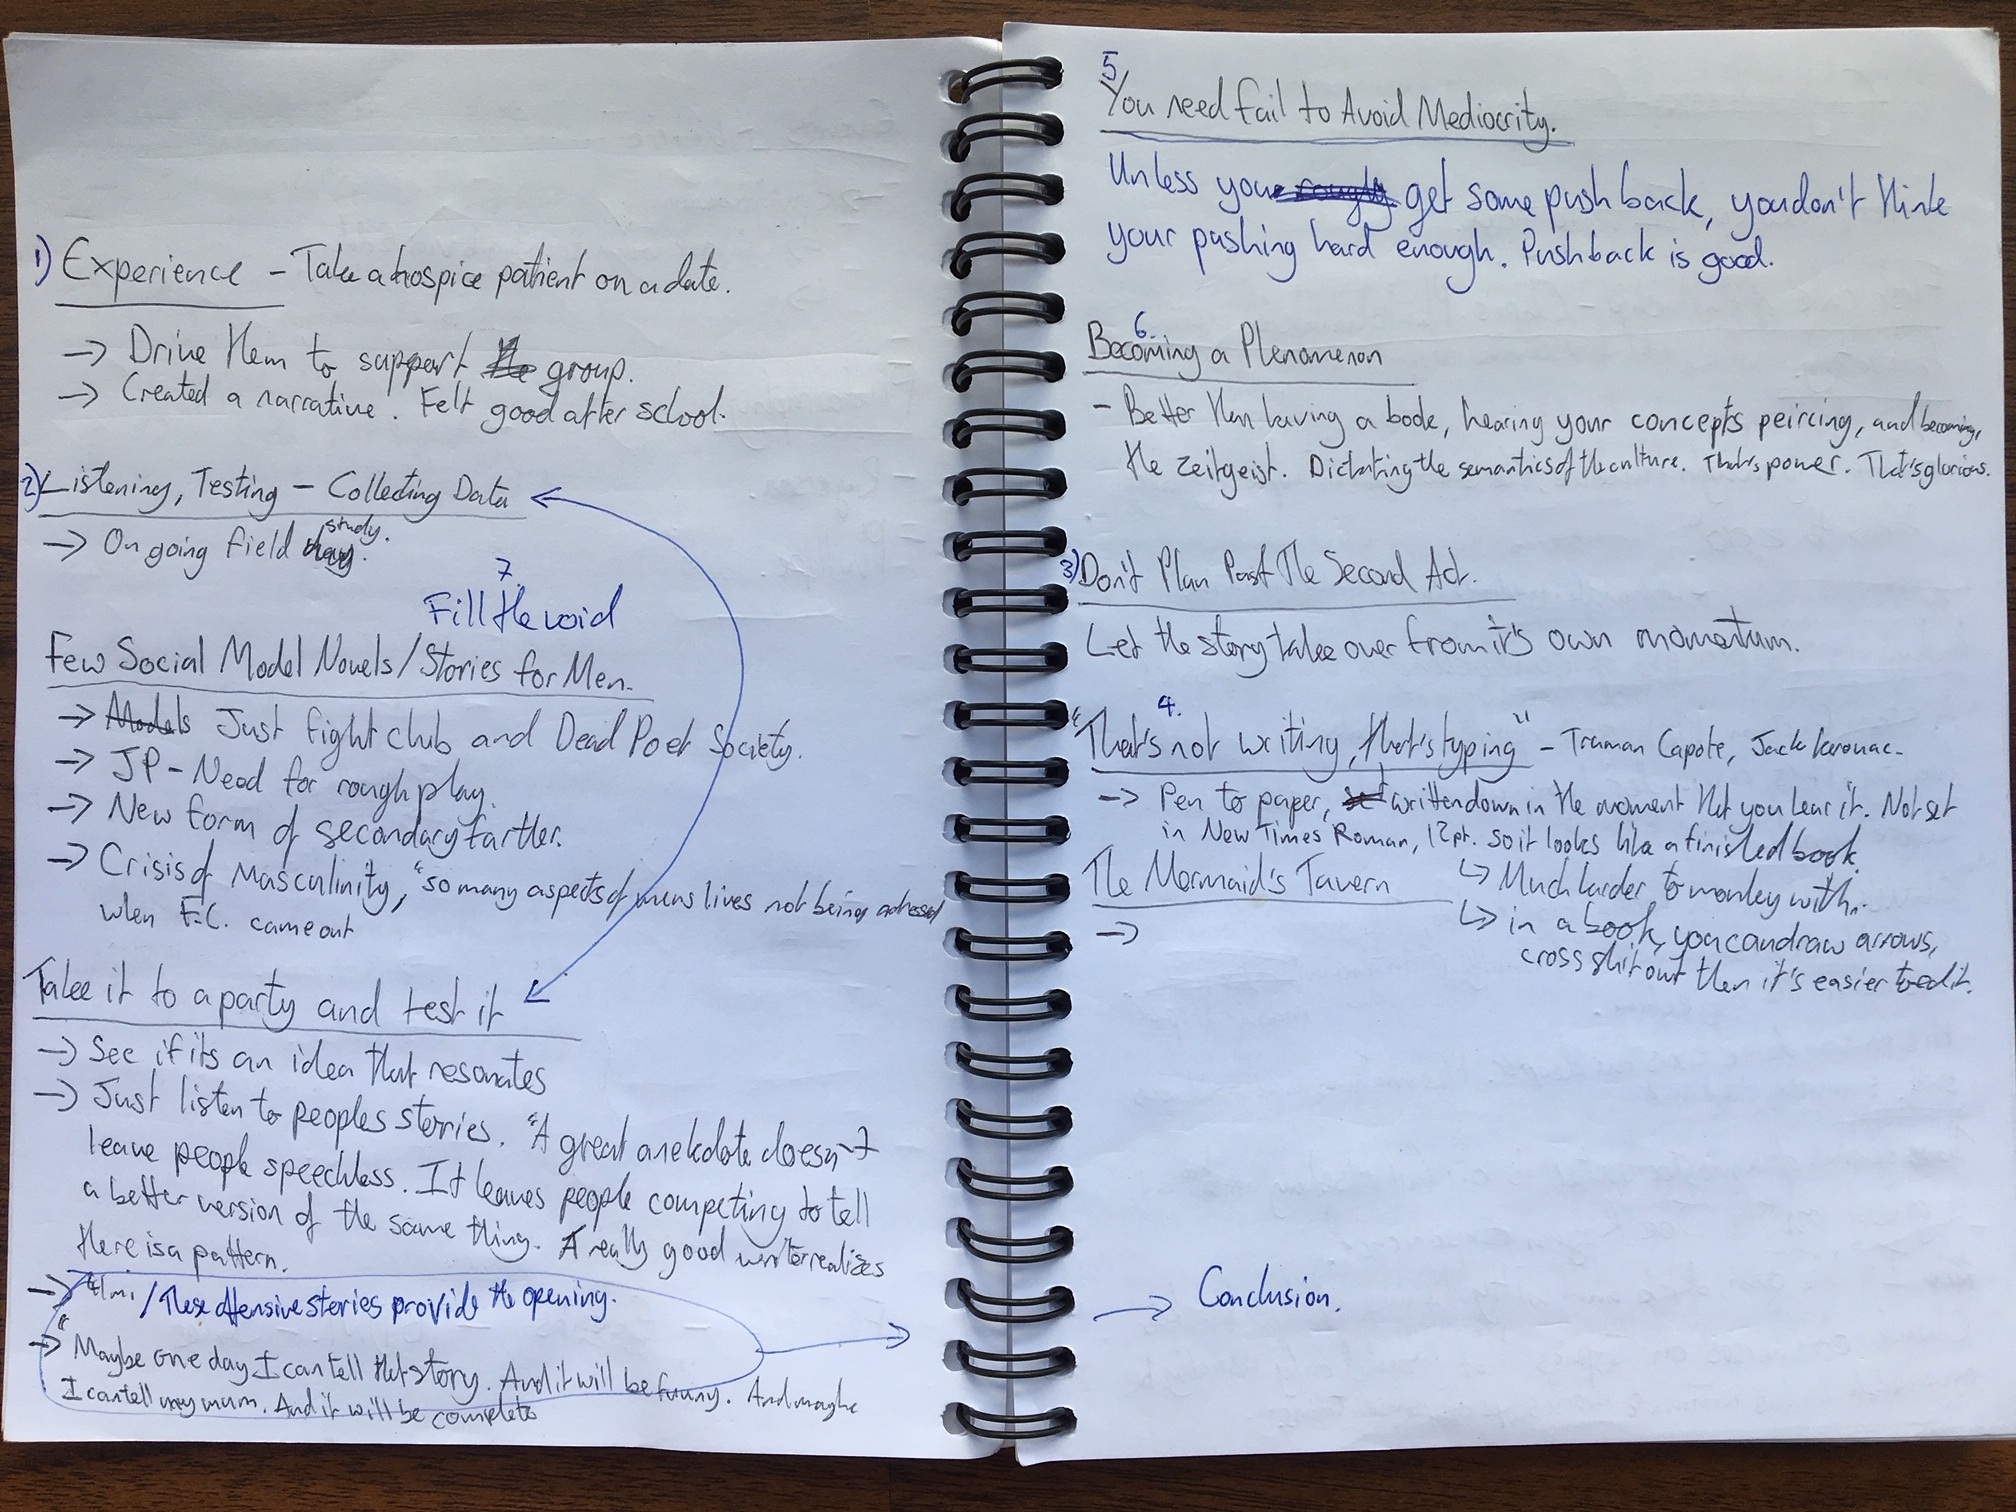 1) Experience - Take a hospice patient on a date.
→ Drive them to support group.
→ Created a narrative. Felt good after school.
2) Listening, Testing - Collecting Data
→ On going field study.
7.
Fill the void
Few Social Model Novels/Stories for Men.
→ Models Just fight club and Dead Poet Society.
→ JP - Need for rough play.
→ New form of secondary farther.
→ Crisis of Masculinity, "so many aspects of mens lives not being adressed
when F.C. came out
Take it to a party and test it
→ See if its an idea that resonates
→ Just listen to peoples stories. "A great anekdote doesn't
leave people speechless. It leaves people competing to tell
a better version of the same thing. A really good writer realizes
there is a pattern.
→ / These offensive stories provide the opening.
→ "Maybe one day I can tell that story. And it will be funny. And maybe
I can tell my mum. And it will be complete
5
You need fail to Avoid Mediocrity.
Unless you get some push back, you don't think
your pushing hard enough. Pushback is good.
6.
Becoming a Phenomenon
- Better then having a book, hearing your concepts peircing, and becoming,
the zeitgeist. Dictating the semantics of the culture. That's power. That's glorious.
3) Don't Plan Past The Second Act.
Let the story take over from it's own momentum.
4.
"That's not writing, that's typing" - Truman Capote, Jack Kerouac.
→ Pen to paper, written down in the moment that you hear it. Not set
in New Times Roman, 12pt. so it looks like a finished book.
↳ Much harder to monkey with.
↳ in a book, you can draw arrows,
cross shit out then it's easier to edit.
The Mermaid's Tavern
→
→ Conclusion.